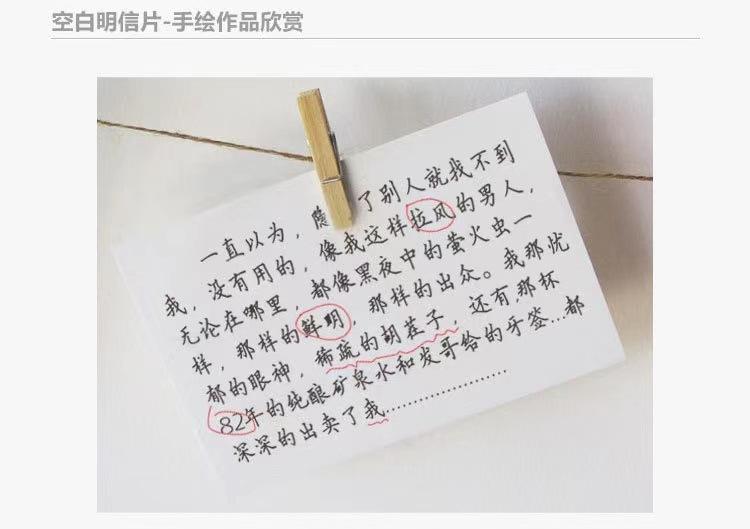 空白明信片-手绘作品欣赏
一直以为，隐了别人就找不到
我，没有用的，像我这样拉风的男人，
无论在哪里，都像黑夜中的萤火虫一
样，那样的鲜明，那样的出众。我那忧
郁的眼神，稀疏的胡茬子，还有那杯
82年的纯酿矿泉水和发哥给的牙签...都
深深的出卖了我..................